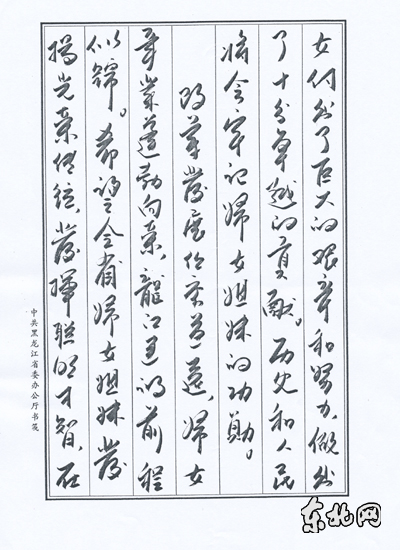 女付出了巨大的艰辛和努力,做出
了十分卓越的贡献。历史和人民
将会牢记婦女姐妹的功勋。
改革發展任重道遠,婦女
事業蓬勃向荣,龍江前程
似锦。希望全省婦女姐妹發
揚光荣传统,發揮聪明才智,在
中共黑龙江省委办公厅书笺
东北网